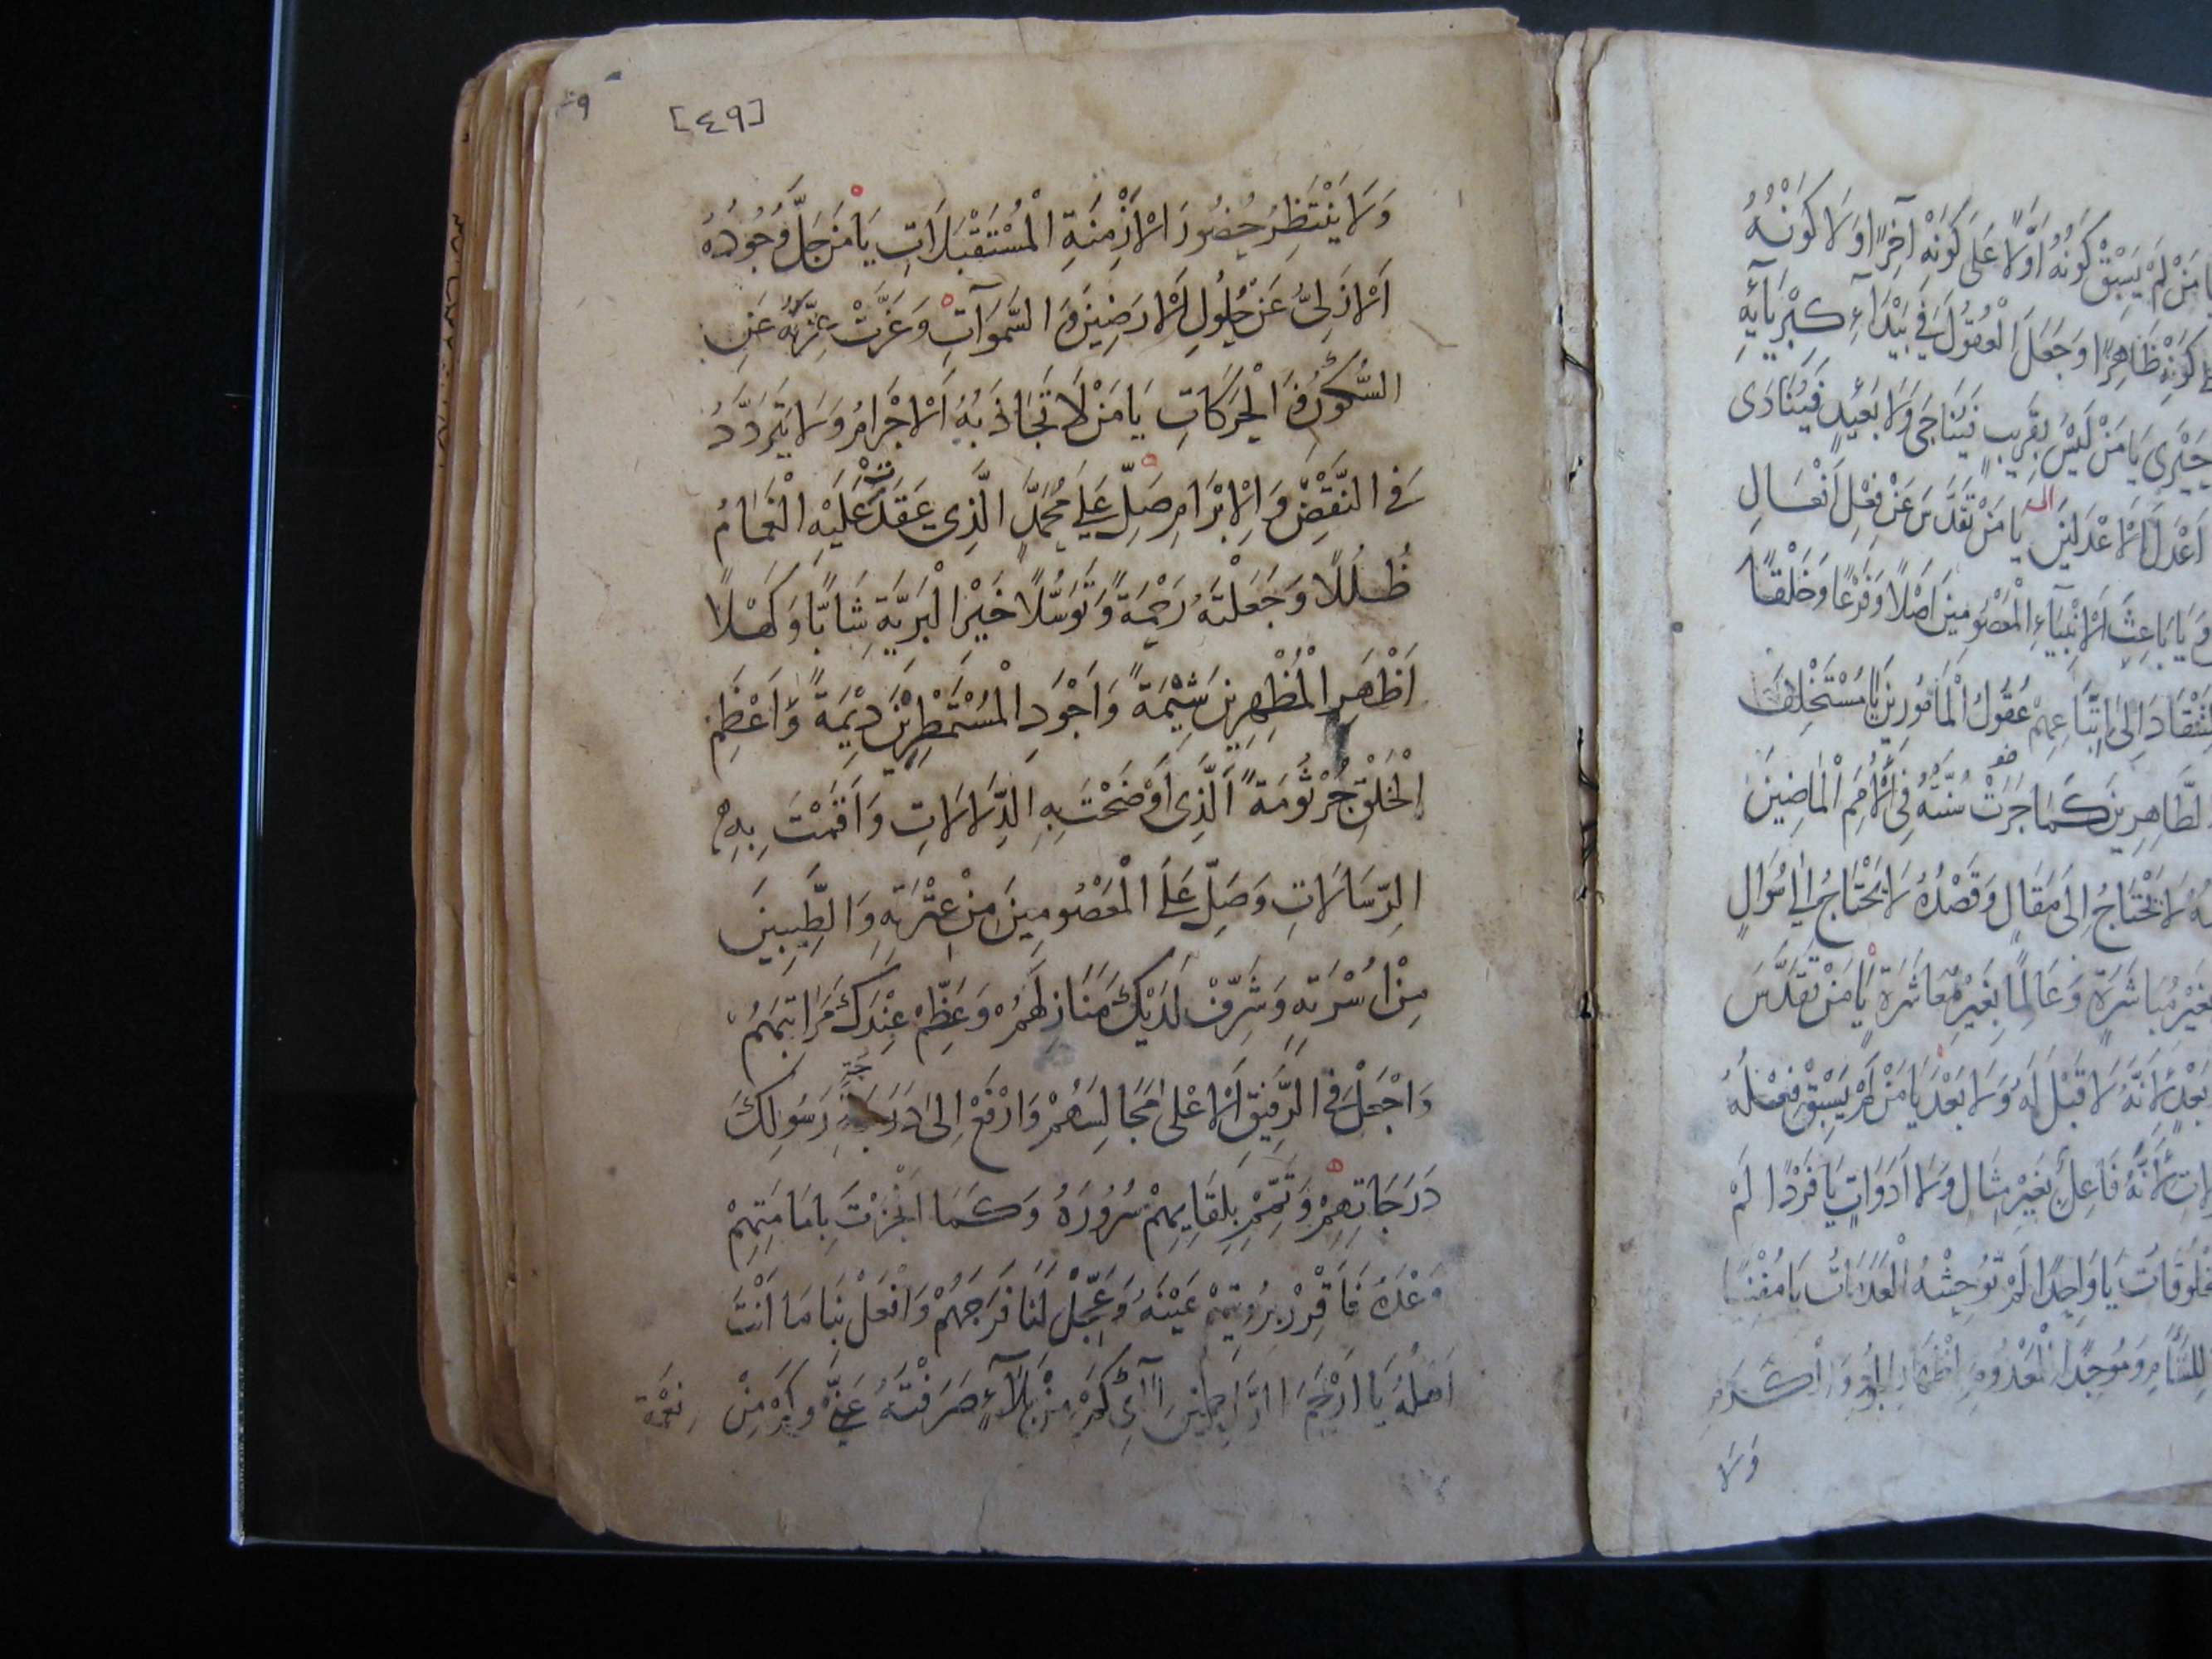 مَنْ لَمْ يَسْبِقْ كَوْنُهُ أَوَّلًا عَلَى كَوْنِهِ آخِرًا وَلَا كَوْنُهُ
كَوْنِهِ ظَاهِرًا وَجَعَلَ الْعُقُولَ فِي بَيْدَاءِ كِبْرِيَائِهِ
حَيْرَى يَا مَنْ لَيْسَ بِقَرِيبٍ فَيُنَاجَى وَلَا بَعِيدٍ فَيُنَادَى
اَعْدَلَ الْاَعْدَلِينَ يَا مَنْ تَقَدَّسَ عَنْ فِعْلِ اَفْعَالِ
وَيَا بَاعِثَ الْاَنْبِيَآءِ الْمَعْصُومِينَ اَصْلًا وَفَرْعًا وَخَلْقًا
اِلَى اِتِّبَاعِهِمْ عُقُولَ الْمَأْمُورِينَ يَا مُسْتَخْلِفَ
الطَّاهِرِينَ كَمَا جَرَتْ سُنَّتُهُ فِي الْاُمَمِ الْمَاضِينَ
لَا يَحْتَاجُ اِلَى مَقَالٍ وَقَصْدُهُ لَا يَحْتَاجُ اِلَى سُؤَالٍ
بِغَيْرِ مُبَاشَرَةٍ وَعَالِمًا بِغَيْرِ مُعَاشَرَةٍ يَا مَنْ تَقَدَّسَ
لِاَنَّهُ لَا قَبْلَ لَهُ وَلَا بَعْدَ يَا مَنْ لَمْ يَسْبِقْ فِعْلَهُ
لِاَنَّهُ فَاعِلٌ بِغَيْرِ مِثَالٍ وَلَا اَدَوَاتٍ يَا فَرْدًا لَمْ
يَا وَاحِدًا لَمْ تُوحِشْهُ
وَلَا
[٤٩]
وَلَا يَنْتَظِرُ حُضُورَ الْاَزْمِنَةِ الْمُسْتَقْبَلَاتِ يَا مَنْ جَلَّ وُجُودُهُ
الْاَزَلِيُّ عَنْ حُلُولِ الْاَرَضِينَ وَ السَّمَوَاتِ وَعَزَّتْ عِزَّتُهُ عَنِ
السُّكُونِ وَ الْحَرَكَاتِ يَا مَنْ لَا تَجَاذَبُهُ الْاَجْرَامُ وَلَا يَتَرَدَّدُ
فِي النَّقْضِ وَ الْاِبْرَامِ صَلِّ عَلَى مُحَمَّدٍ الَّذِي عَقَدَتْ عَلَيْهِ الْغَمَامُ
ظُلَلًا وَجَعَلْتَهُ رَحْمَةً وَتَوَسُّلًا خَيْرِ الْبَرِيَّةِ شَابًّا وَكَهْلًا
اَطْهَرِ الْمُطْهَرِينَ شِيمَةً وَاَجْوَدِ الْمُسْتَمْطَرِينَ دِيمَةً وَاَعْظَمِ
الْخَلْقِ جُرْثُومَةً الَّذِي اَوْضَحْتَ بِهِ الدِّلَالَاتِ وَاَقَمْتَ بِهِ
الرِّسَالَاتِ وَصَلِّ عَلَى الْمَعْصُومِينَ مِنْ عِتْرَتِهِ وَالطَّيِّبِينَ
مِنْ اُسْرَتِهِ وَشَرِّفْ لَدَيْكَ مَنَازِلَهُمْ وَعَظِّمْ عِنْدَكَ مَرَاتِبَهُمْ
وَاجْعَلْ فِي الرَّفِيقِ الْاَعْلَى مَجَالِسَهُمْ وَارْفَعْ اِلَى دَرَجَةِ رَسُولِكَ
دَرَجَاتِهِمْ وَتَمِّمْ بِلِقَايِهِمْ سُرُورَهُ وَكَمَا اَنْجَزْتَ بِاِمَامَتِهِمْ
وَعْدَهُ فَاَقْرِرْ بِرُؤْيَتِهِمْ عَيْنَهُ وَعَجِّلْ لَنَا فَرَجَهُمْ وَافْعَلْ بِنَا مَا اَنْتَ
اَهْلُهُ يَا اَرْحَمَ الرَّاحِمِينَ كَمْ مِنْ بَلَآءٍ صَرَفْتَهُ وَكَمْ مِنْ نِعْمَة